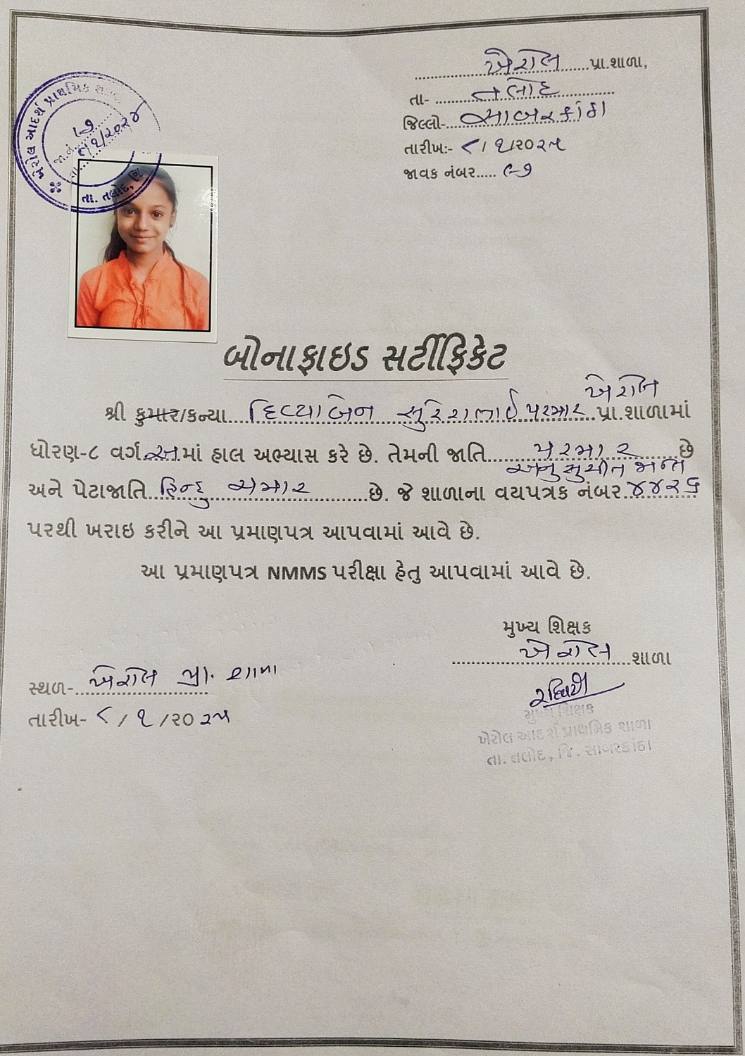 ખેરોલ પ્રા.શાળા,
તા- તલોદ
જિલ્લો- સાબરકાંઠા
તારીખ:- ૮/૧/૨૦૨૫
જાવક નંબર..... ૯૭
ખેરોલ આદર્શ પ્રાથમિક
૯૭
તા. તલોદ,
બોનાફાઇડ સર્ટીફિકેટ
ખેરોલ
શ્રી કુમાર/કન્યા દિવ્યાબેન પરમાર પ્રા.શાળામાં
ધોરણ-૮ વર્ગ અ માં હાલ અભ્યાસ કરે છે. તેમની જાતિ પરમાર છે
અનુસુચીત
અને પેટાજાતિ હિન્દુ ચમાર છે. જે શાળાના વયપત્રક નંબર ૪૪૨૬
પરથી ખરાઇ કરીને આ પ્રમાણપત્ર આપવામાં આવે છે.
આ પ્રમાણપત્ર NMMS પરીક્ષા હેતુ આપવામાં આવે છે.
મુખ્ય શિક્ષક
ખેરોલ શાળા
સ્થળ- ખેરોલ પ્રા. શાળા
તારીખ- ૮/૧/૨૦૨૫
મુખ્ય શિક્ષક
ખેરોલ આદર્શ પ્રાથમિક શાળા
તા. તલોદ, જિ. સાબરકાંઠા